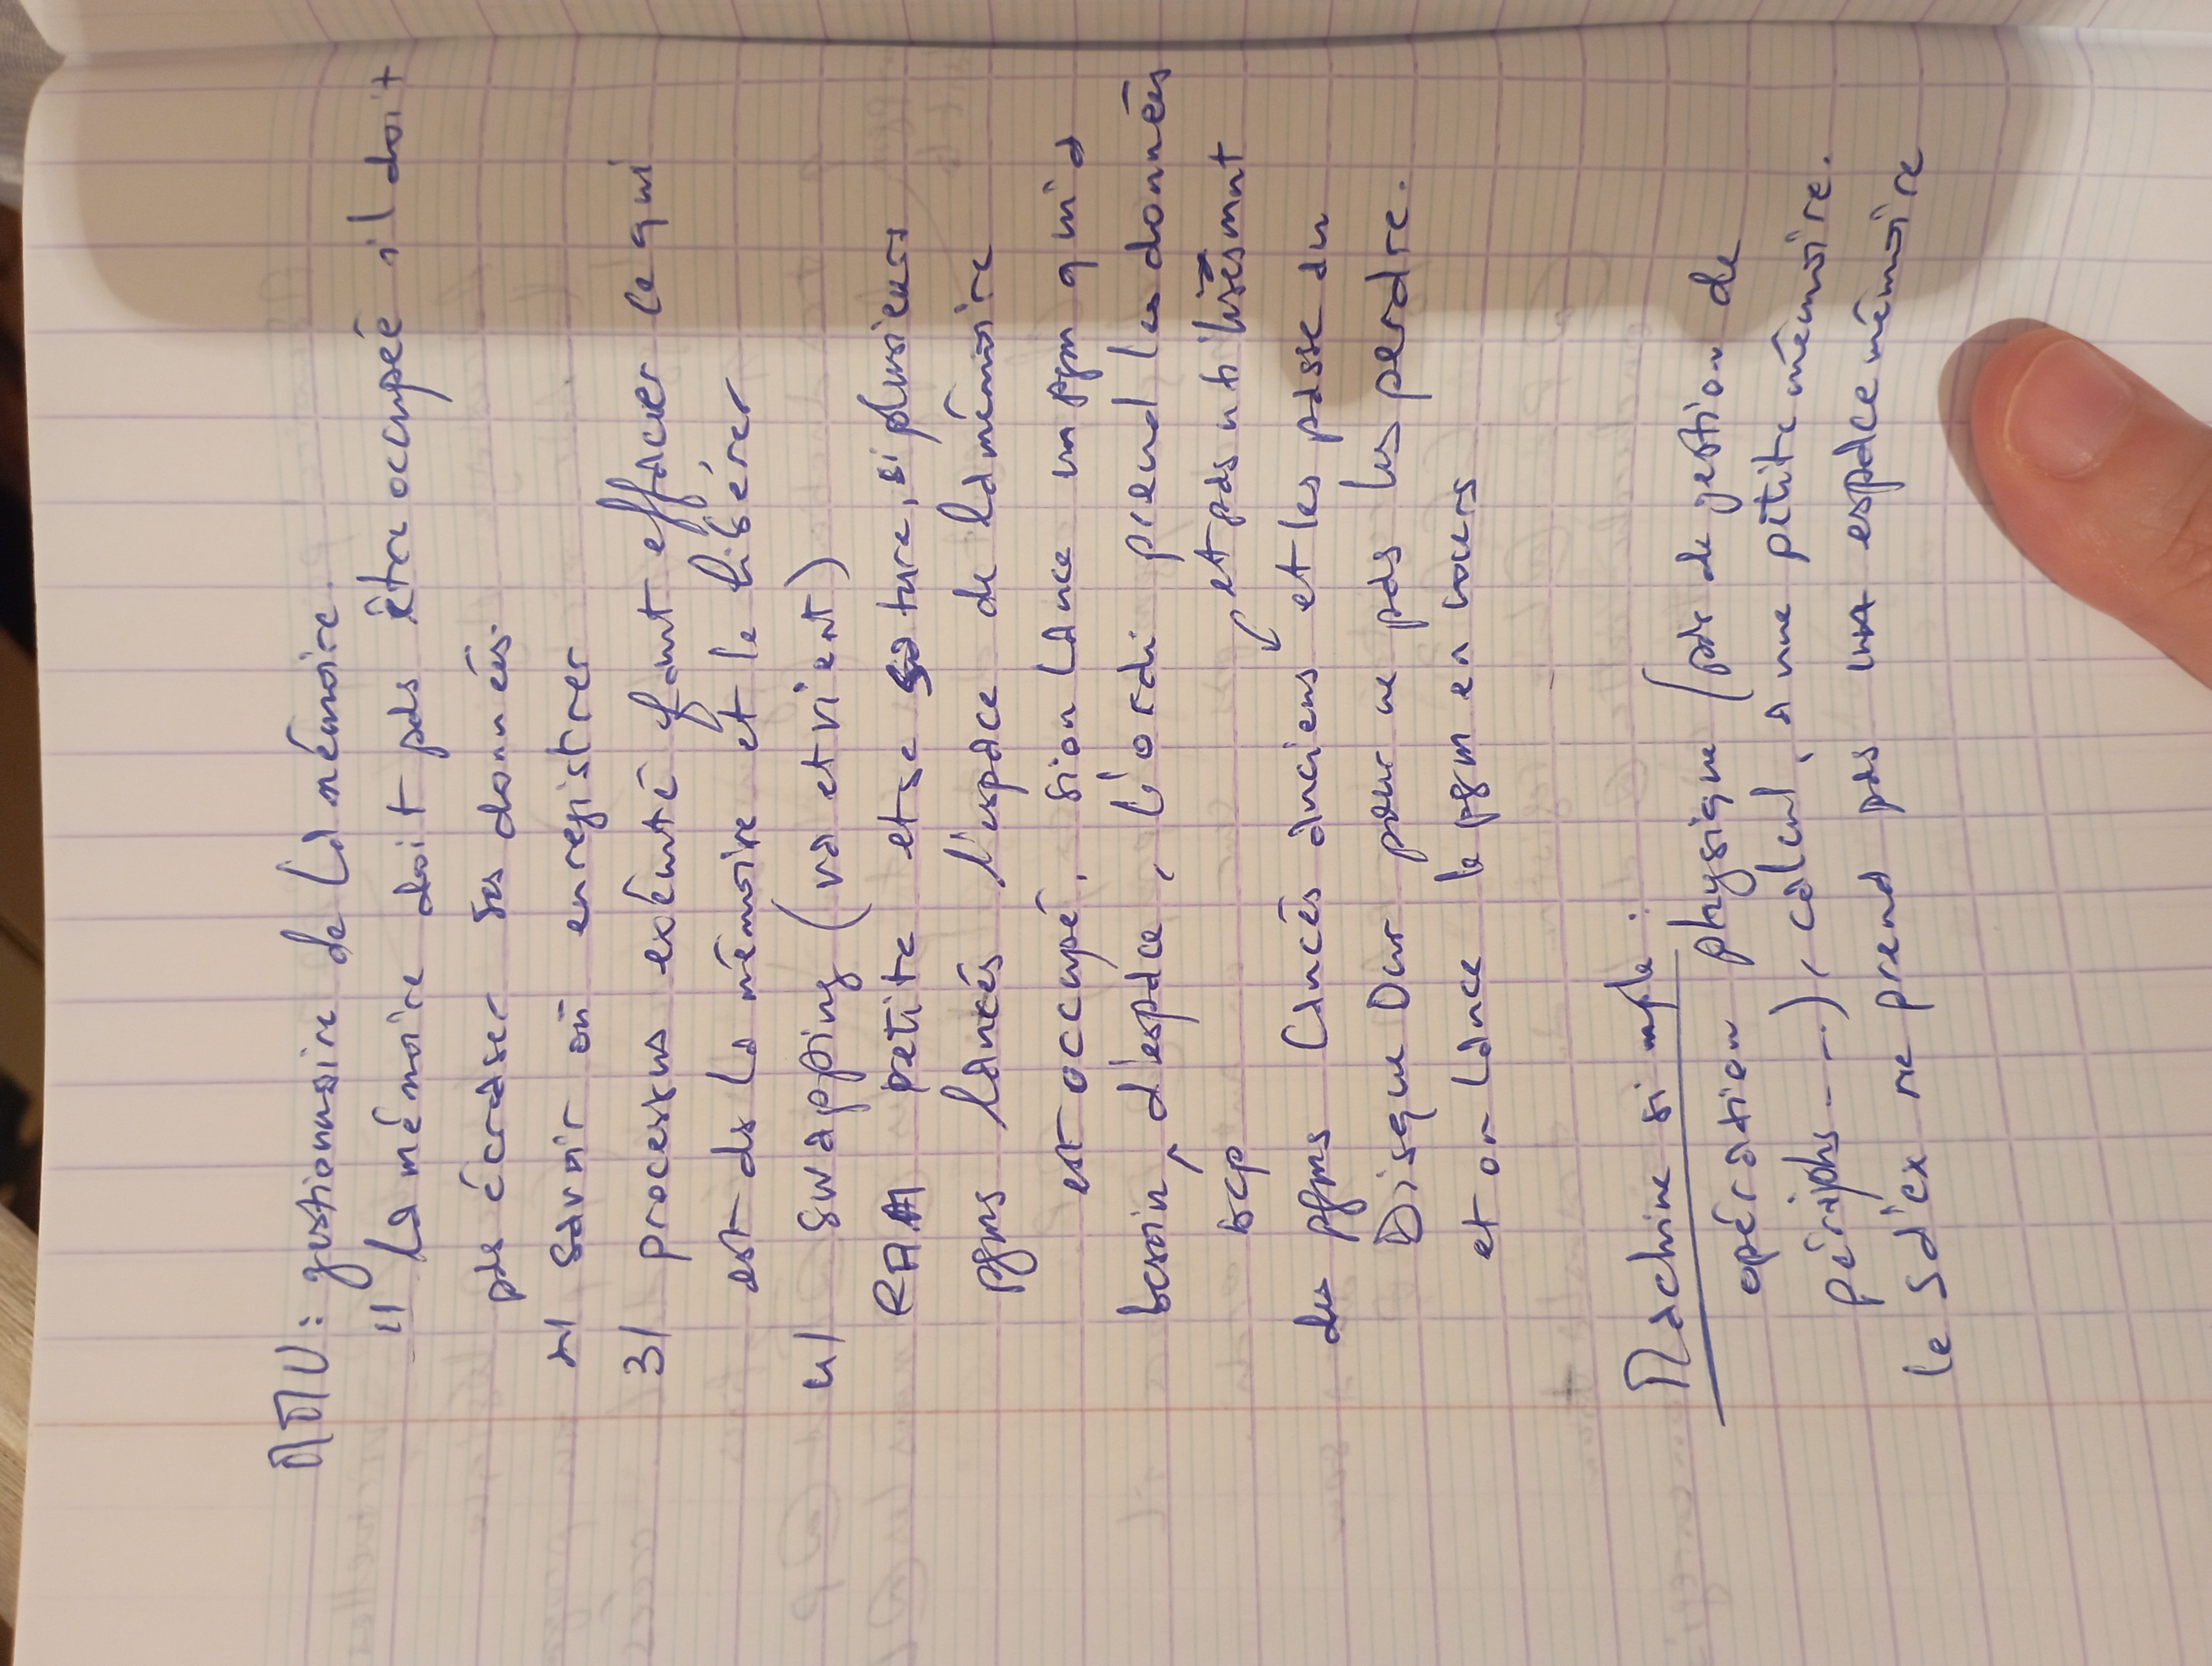 MMU : gestionnaire de la mémoire
1) la mémoire doit pas être occupée il doit
pas écraser ses données.
2) savoir où enregistrer
3) processus exécuté faut effacer ce qui
est ds la mémoire et le libérer
4) swapping (va et vient)
RAM petite et se sature, si plusieurs
pgms lancés l'espace de la mémoire
est occupé, si on lance un pgm qui a
besoin d'espace, l'ordi prend les données
bcp et pas utilisés mnt
des pgms lancés anciens et les passe du
Disque Dur pour ne pas les perdre.
et on lance le pgm en cours
Machine simple :
opération physique (pas de gestion de
périphs ---), calcul, a une petite mémoire.
le S d'ex ne prend pas un espace mémoire